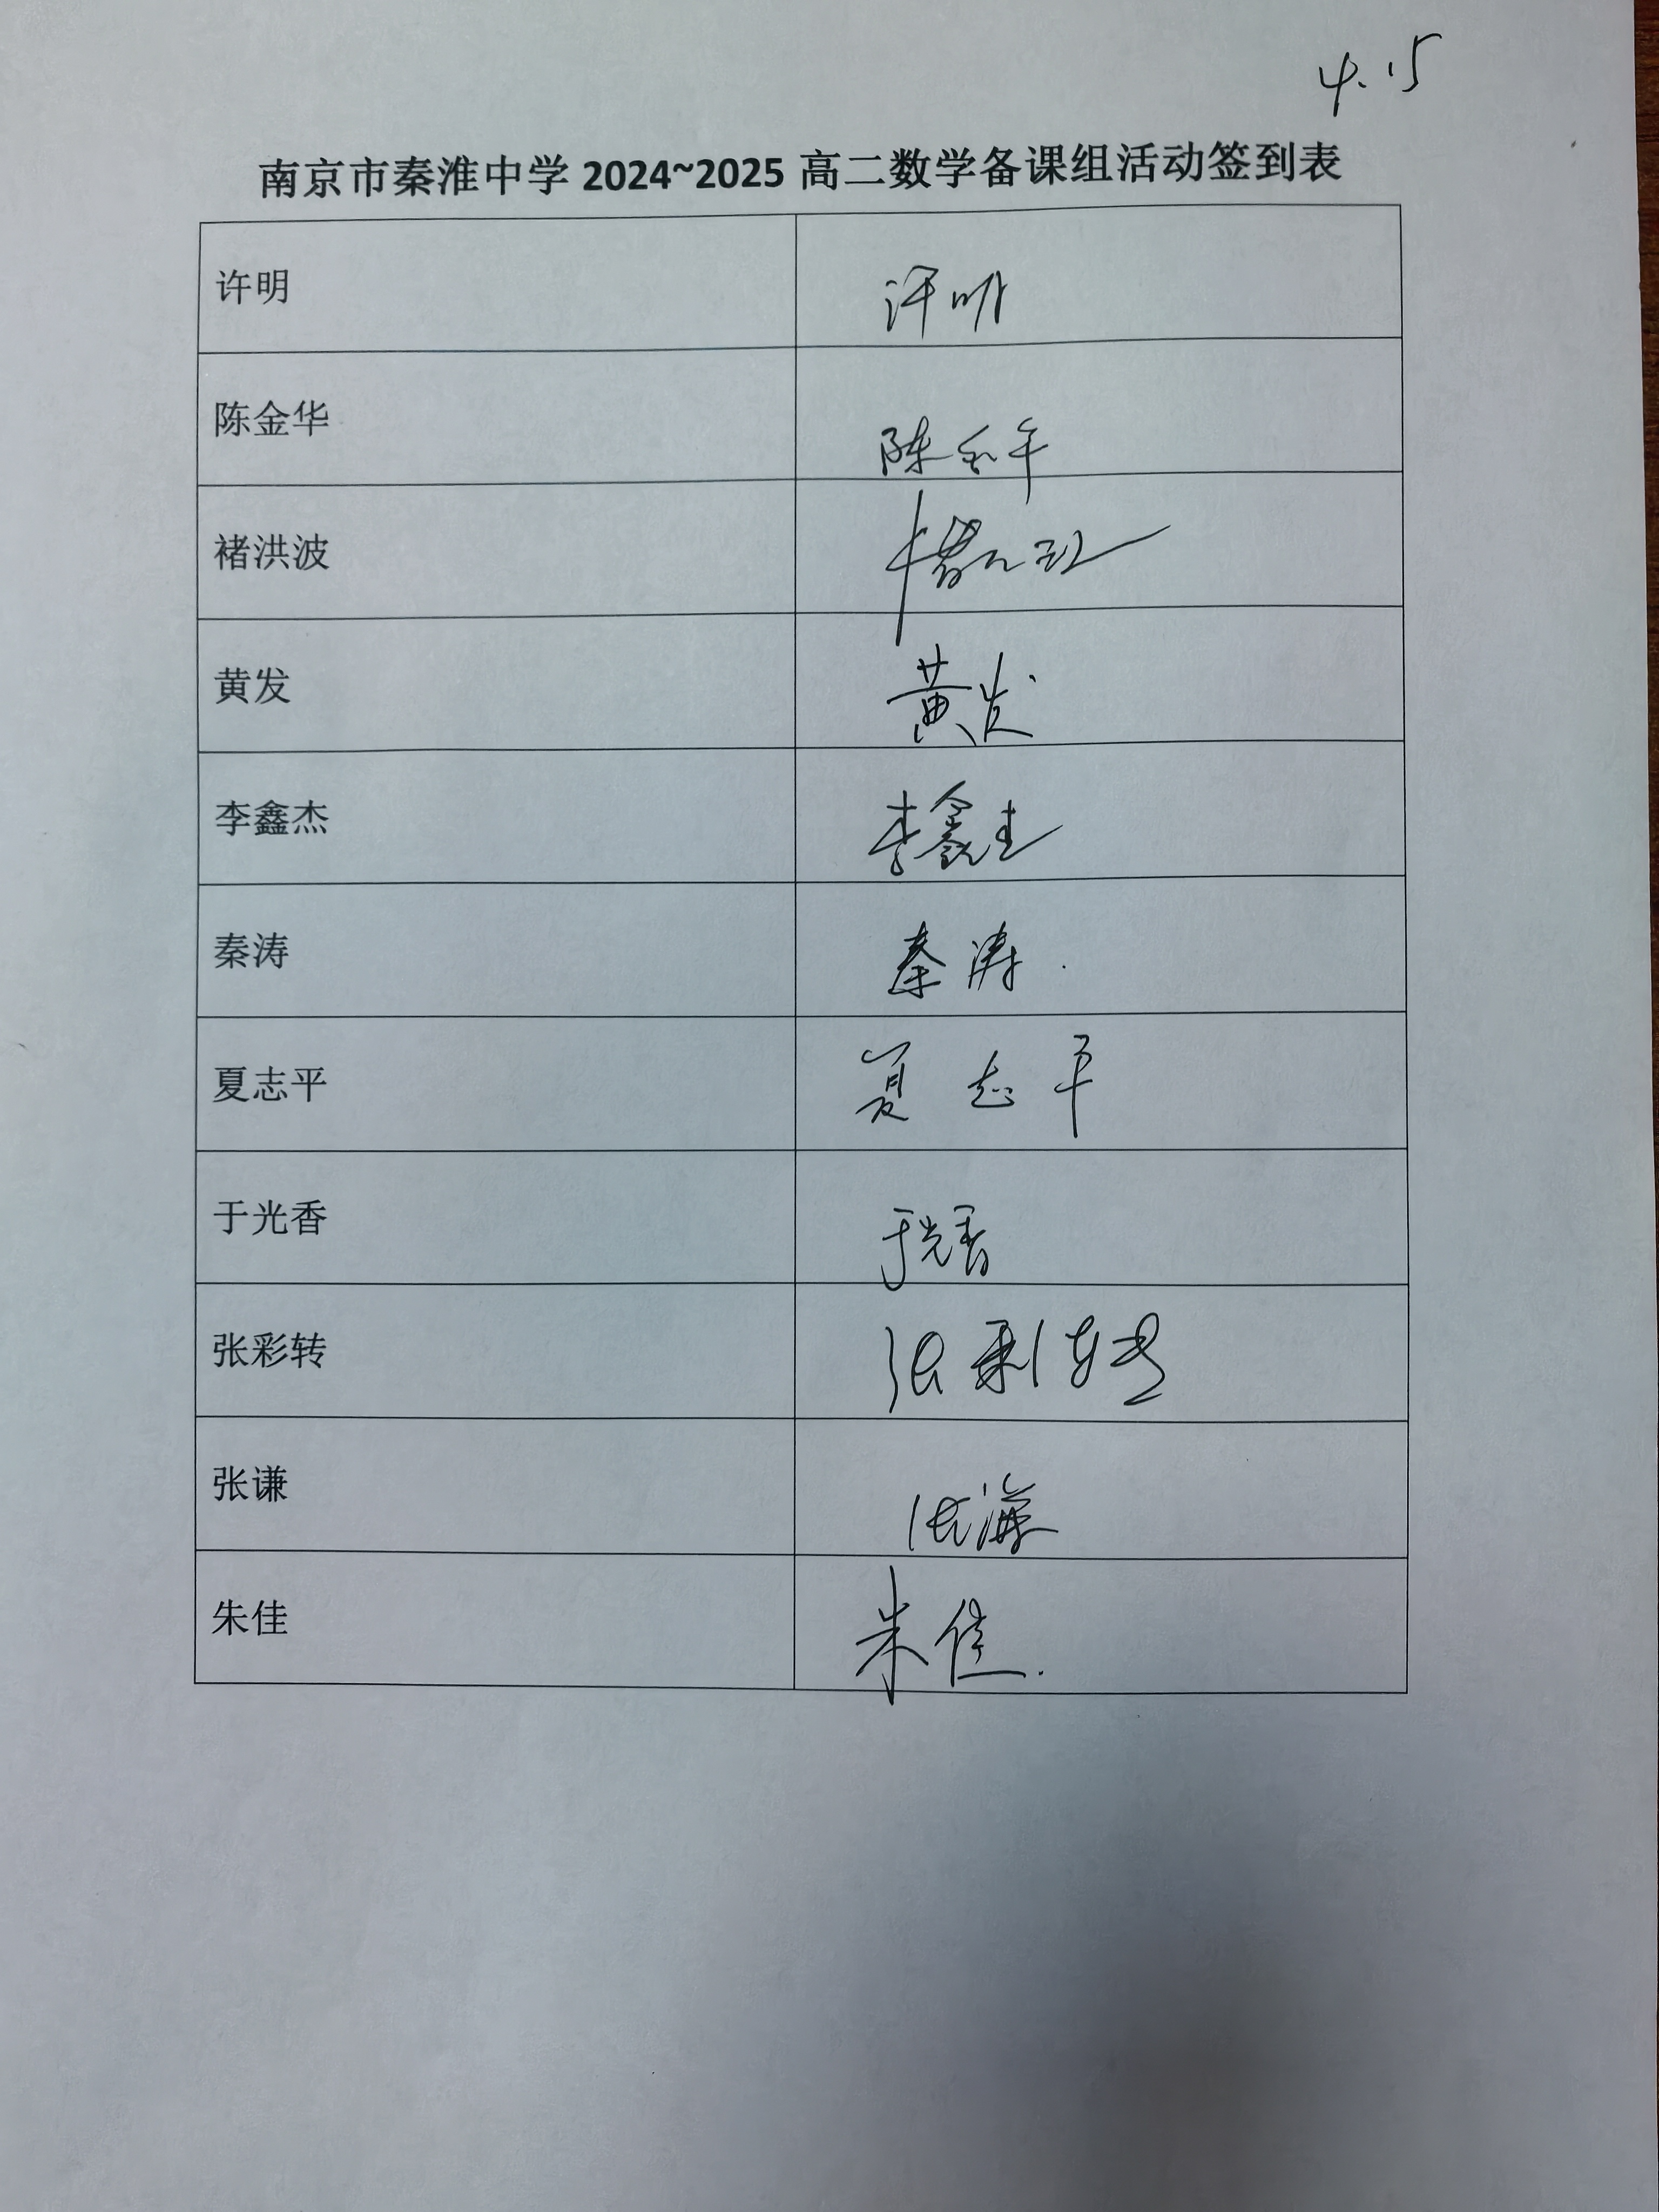 4.15
南京市秦淮中学 2024~2025 高二数学备课组活动签到表
许明 许明
陈金华 陈金华
褚洪波 褚洪波
黄发 黄发
李鑫杰 李鑫杰
秦涛 秦涛.
夏志平 夏志平
于光香 于光香
张彩转 张彩转
张谦 张谦
朱佳 朱佳.